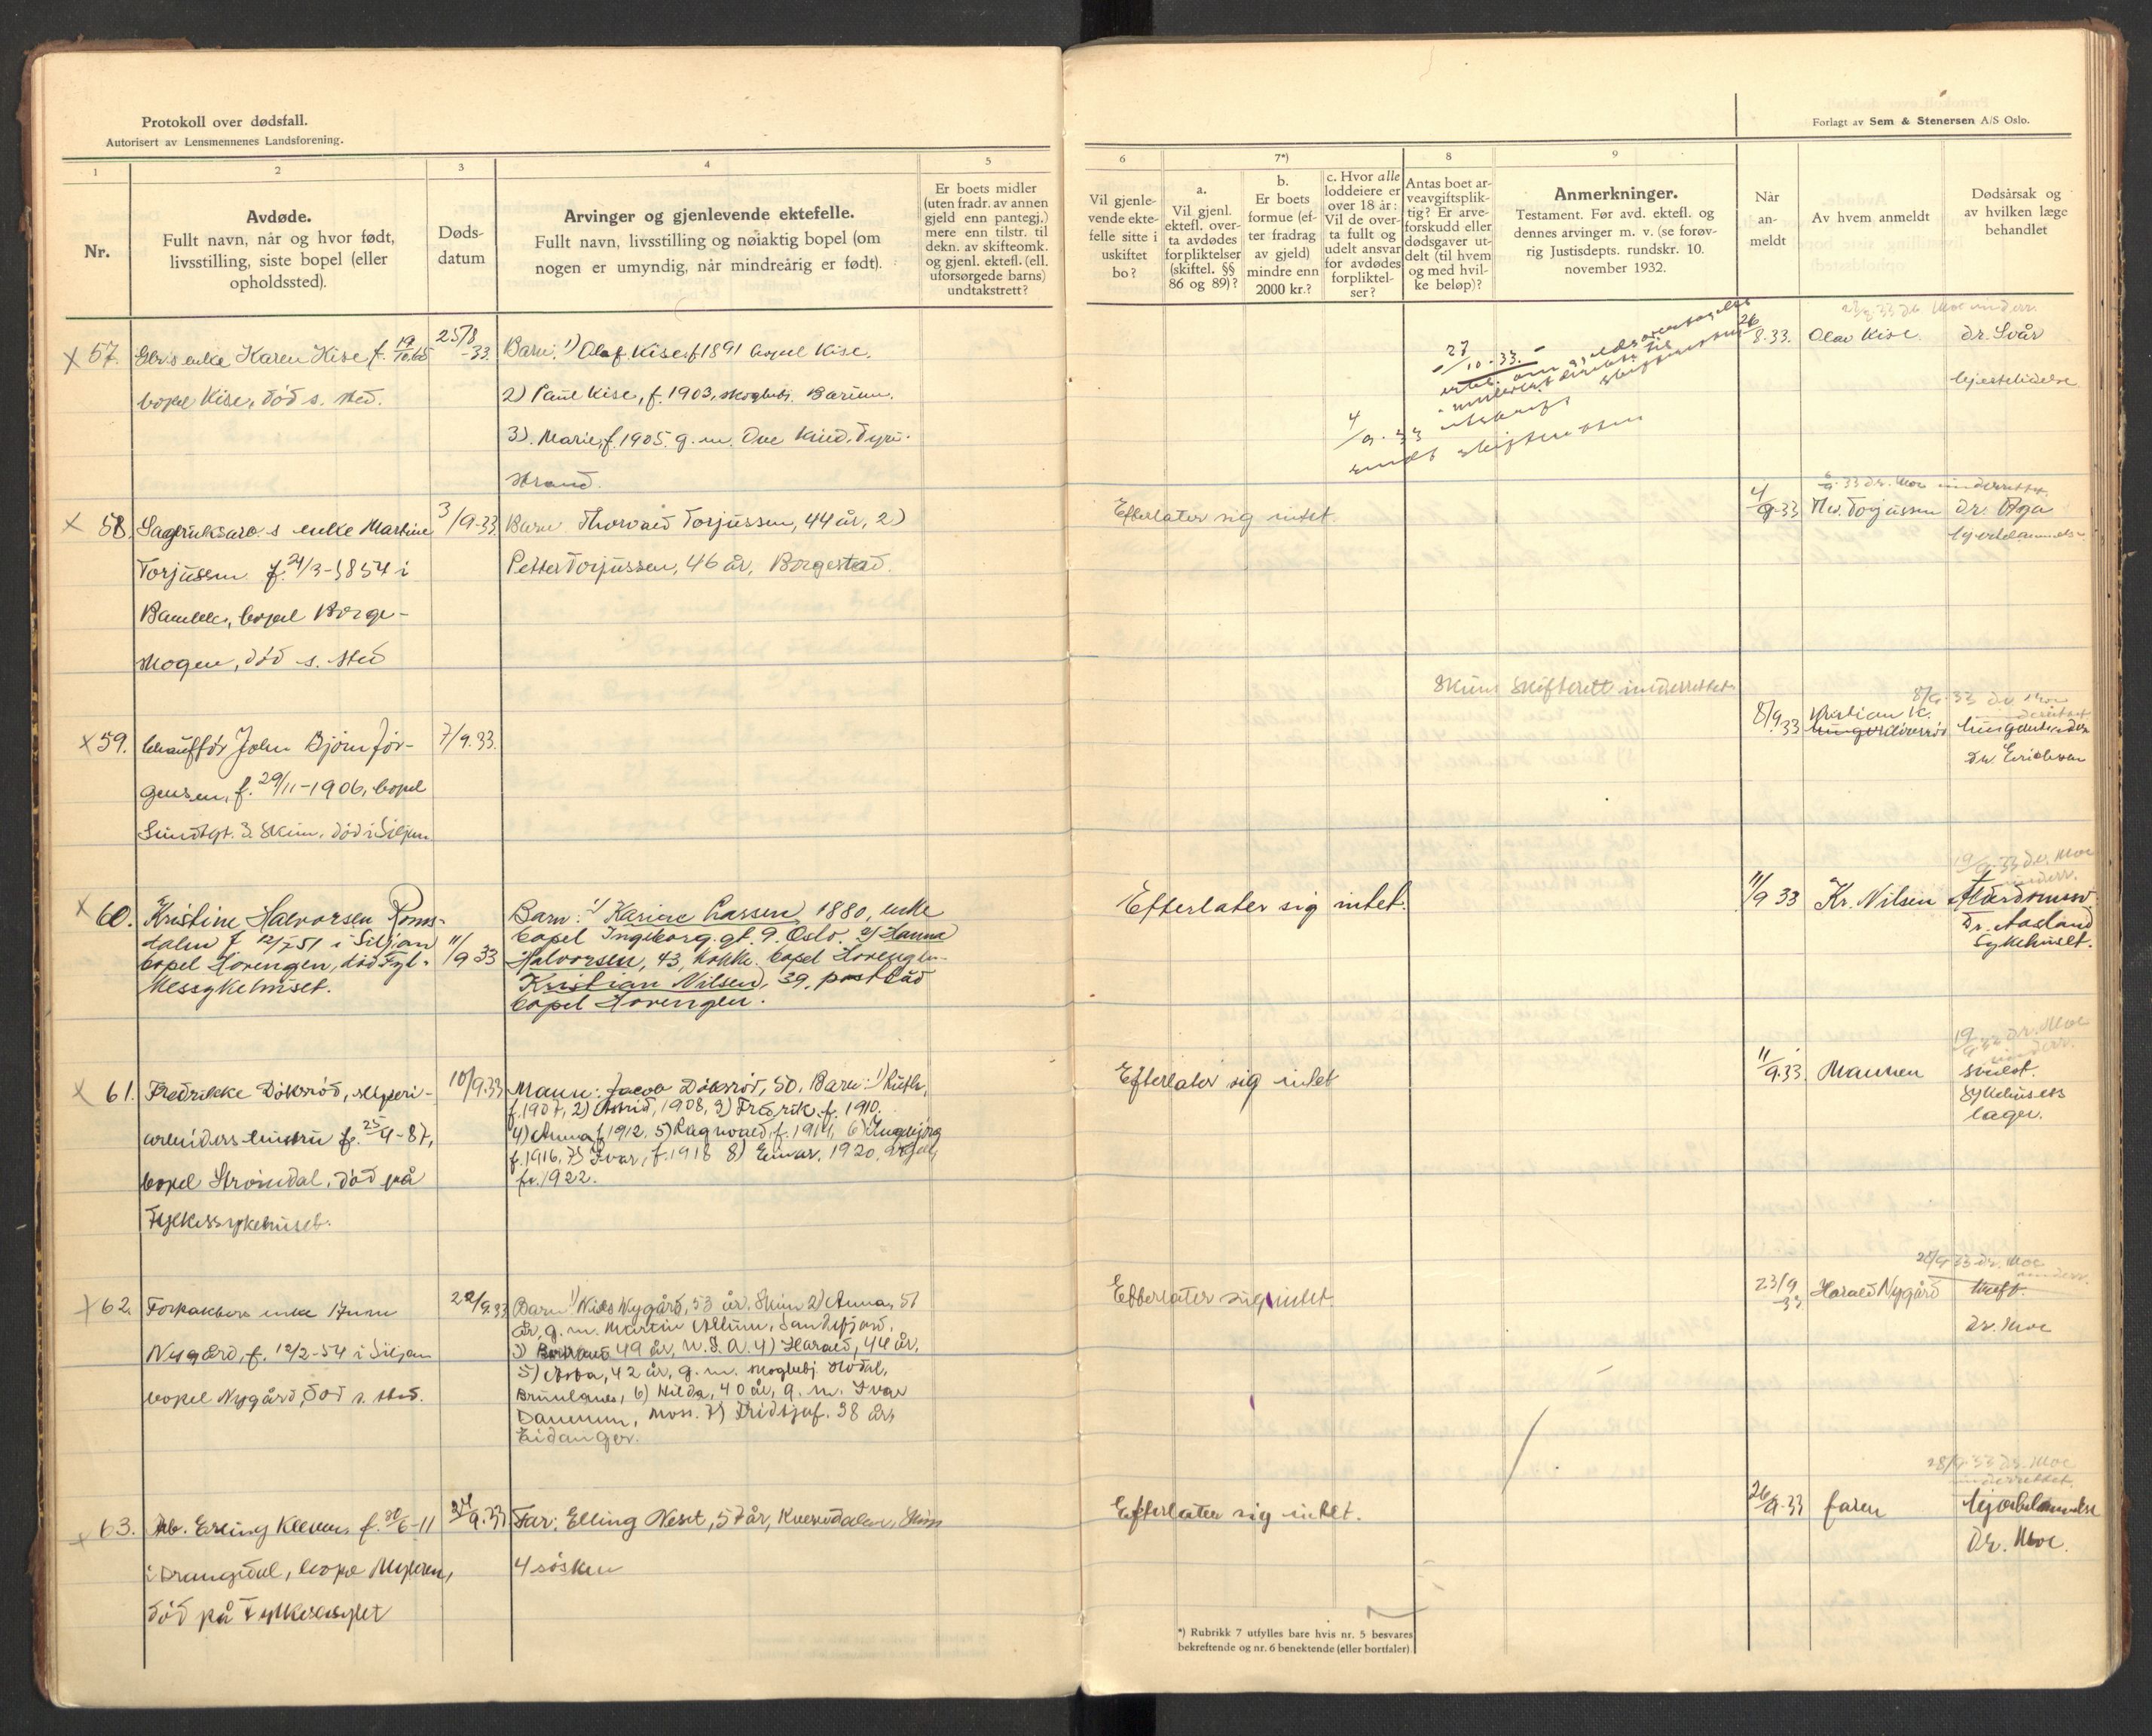 Protokoll over dødsfall.
Autorisert av Lensmennenes Landsforening.
1
2
3
4
5
Nr.
Avdøde.
Fullt navn, når og hvor født,
livsstilling, siste bopel (eller
opholdssted).
Døds-
datum
Arvinger og gjenlevende ektefelle.
Fullt navn, livsstilling og nøiaktig bopel (om
nogen er umyndig, når mindreårig er født).
Er boets midler
(uten fradr. av annen
gjeld enn pantegj.)
mere enn tilstr. til
dekn. av skifteomk.
og gjenl. ektef. (ell.
uforsørgede barns)
undtakstrett?
x 57.
enke Karen Kise f. 19/10.65
bopel Kise, død s. sted.
25/8
-33.
Barn: 1) Olaf Kise f 1891 bopel Kise.
2) Paul Kise, f. 1903, Bærum.
3). Marie, f. 1905. g. m. Ove Tyri-
strand.
x 58.
enke Martine
Torjussen f. 24/3-1854 i
Bamble, bopel Borge-
skogen, død s. sted
3/9-33
Barn Thorvald Torjussen, 44 år, 2)
Petter Torjussen, 46 år, Borgestad.
x 59.
chauffør John Bjørn Jør-
gensen, f. 29/11-1906, bopel
Lundegt. 3. Skien, død i Siljan
7/9.33.
x 60.
Kristine Halvorsen Roms-
dalen f 12/7 51 i Siljan
bopel Horengen, død Fyl-
kessykehuset.
11/9 33
Barn: 1) Karine Larssen, 1880, enke
bopel Ingeborg.gt. 9. Oslo. 2) Hanna
Halvorsen, 43, kokke. bopel Horengen
Kristian Nilsen, 39, postbud
bopel Horengen.
x 61.
Fredrikke Doksrød, sliperi-
arbeiders hustru f. 25/4-87,
bopel Strømdal, død på
Fylkessykehuset.
10/9.33
Mann: Jacob Doksrød, 50, Barn: 1) Ruth,
f. 1907, 2) Astrid, 1908, 3) Fredrik, f. 1910.
4) Anna f 1912, 5) Ragnvald, f. 1914, 6) Ingebjørg
f. 1916, 7) Ivar, f. 1918 8) Einar, 1920,
f. 1922.
x 62.
Forpakters enke Anne
Nygård, f. 12/2-54 i Siljan
bopel Nygård, død s. sted.
22/9.33
Barn 1) Niels Nygård, 53 år, Skien 2) Anna, 51
år, g. m. Martin Sandefjord,
3) 49 år, U.S.A. 4) Harald, 44 år,
5) 42 år, g. m.
Brunlanes, 6) Hilda, 40 år, g. m. Ivar
Moss. 7) Fridtjof. 38 år,
Eidanger.
x 63.
Arb. Erling f. 30/6-11
i Drangedal, bopel
død på Fylkesasylet
24/9.33
Far: Elling Neset, 57 år, Skien
4 søsken
Forlagt av Sem & Stenersen A/S Oslo.
6
7*)
8
9
Vil gjenle-
vende ekte-
felle sitte i
uskiftet
bo?
a.
Vil gjenl.
ektefl. over-
ta avdødes
forpliktelser
(skiftel. §§
86 og 89)?
b.
Er boets
formue (ef-
ter fradrag
av gjeld)
mindre enn
2000 kr.?
c. Hvor alle
loddeiere er
over 18 år:
Vil de over-
ta fullt og
udelt ansvar
for avdødes
forpliktel-
ser?
Antas boet ar-
veavgiftsplik-
tig? Er arve-
forskudd eller
dødsgaver ut-
delt (til hvem
og med hvil-
ke beløp)?
Anmerkninger.
Testament. Før avd. ektefl. og
dennes arvinger m. v. (se forøv-
rig Justisdepts. rundskr. 10.
november 1932.
Når
an-
meldt
Av hvem anmeldt
Dødsårsak og
av hvilken læge
behandlet
27/10-33.
erkl. om gjeldsovertagelse
direkte til
skifteretten
4/9.33 utskrift
sendt skifteretten
26
8.33.
Olav Kise
dr. Svår
hjertelidelse
Efterlater sig intet
4/9-33
Th. Torjussen
6/9.33 dr. Moe underrettet.
dr. Aga
Skien skifterett underrettet
8/9 33
Kristian K.
8/9.33 dr. Moe
underrettet
lungeblødn
dr. Erichsen
Efterlater sig intet.
11/9 33
Kr. Nilsen
19/9.33 dr. Moe
underr.
Alderdomssv.
Dr. Aasland
Sykehuset.
Efterlater sig intet
11/9.33
Mannen
19/9.33 dr. Moe
underr.
sykehusets
læge.
Efterlater sig intet.
23/9
33
Harald Nygård
28/9 33 dr. Moe
underr.
Kreft.
dr. Moe
Efterlater sig intet.
26/9.33
faren
28/9.33 dr. Moe
underrettet.
hjertelammelse
Dr. Moe.
*) Rubrikk 7 utfylles bare hvis nr. 5 besvares
bekreftende og nr. 6 benektende (eller bortfaler)